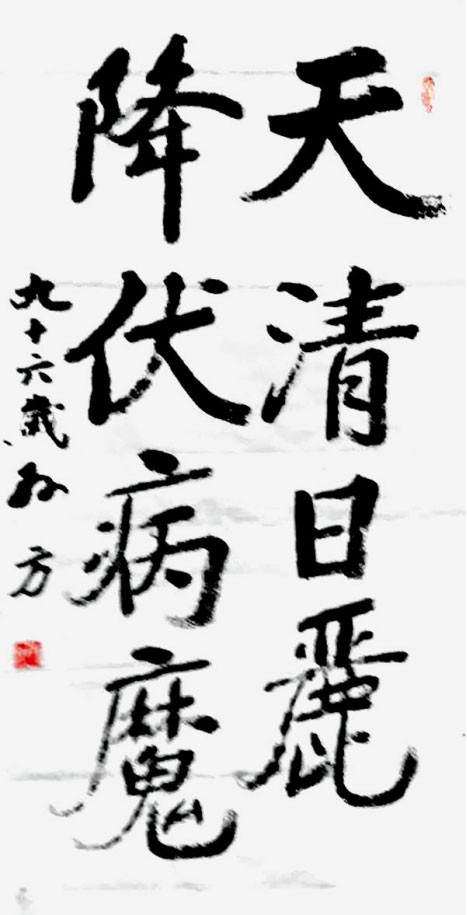 天清日麗
降伏病魔
九十六歲孙方